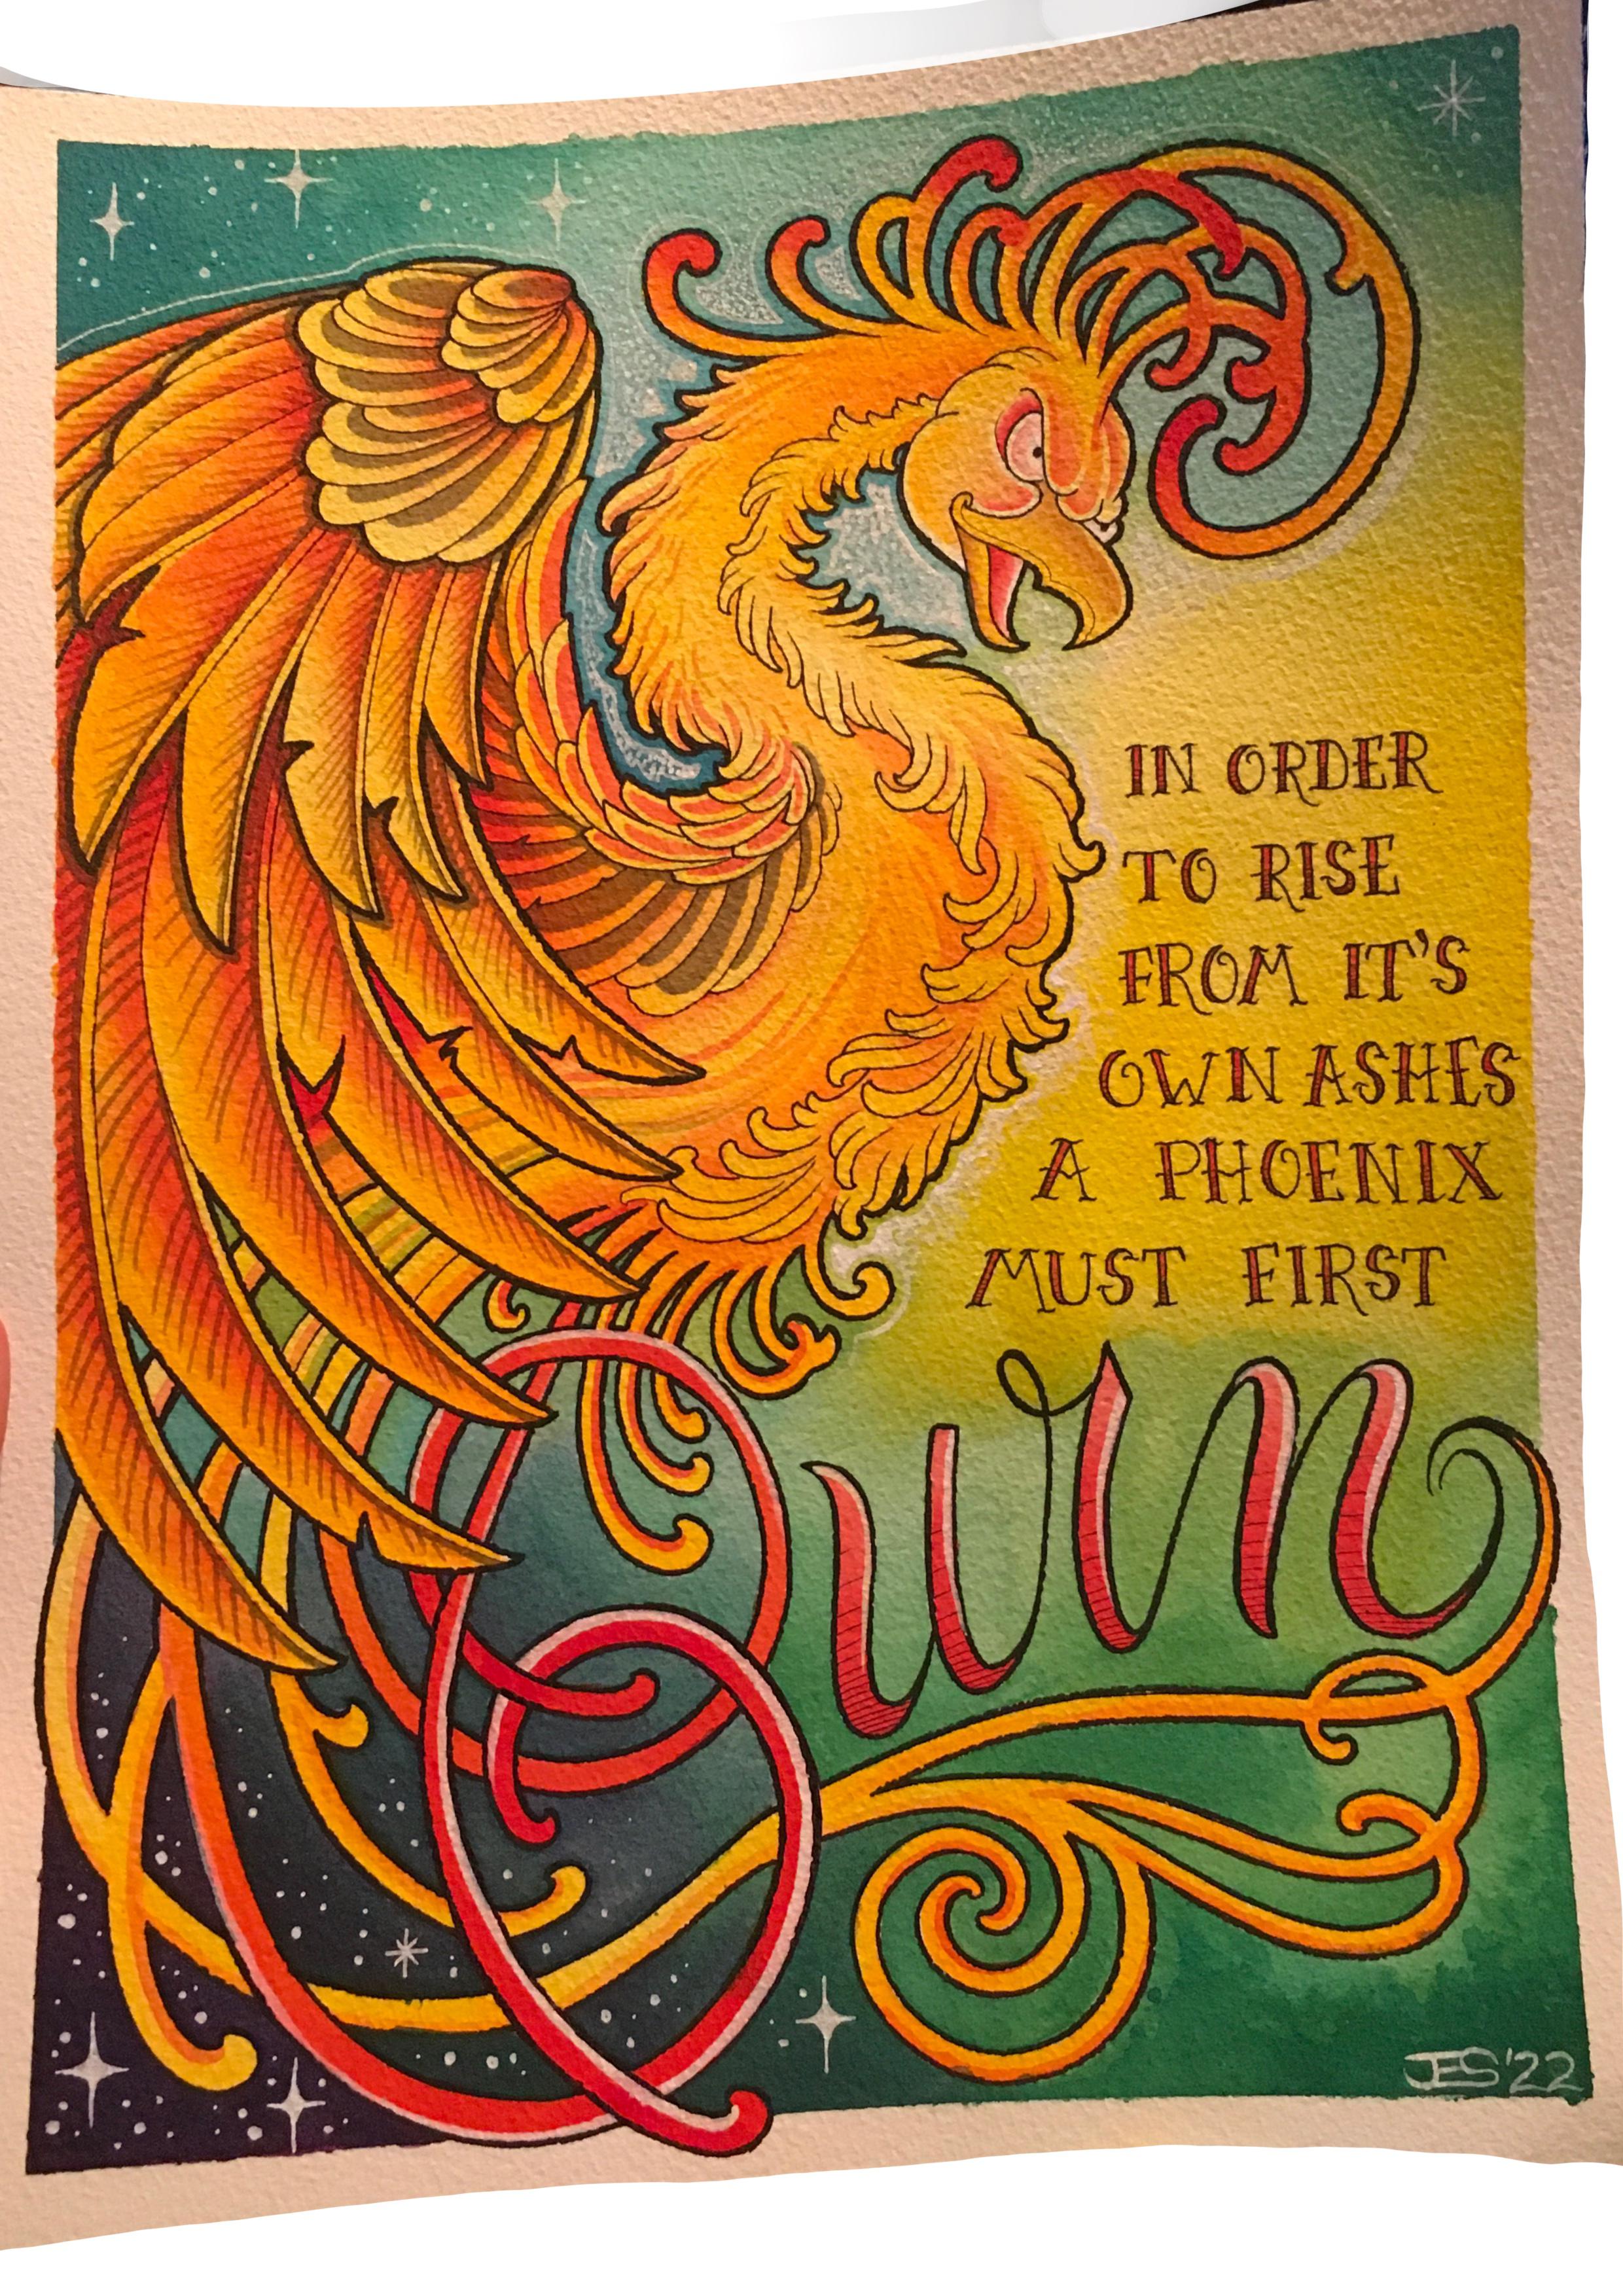 IN ORDER
TO RISE
FROM IT'S
OWN ASHES
A PHOENIX
MUST FIRST
Burn
JES '22